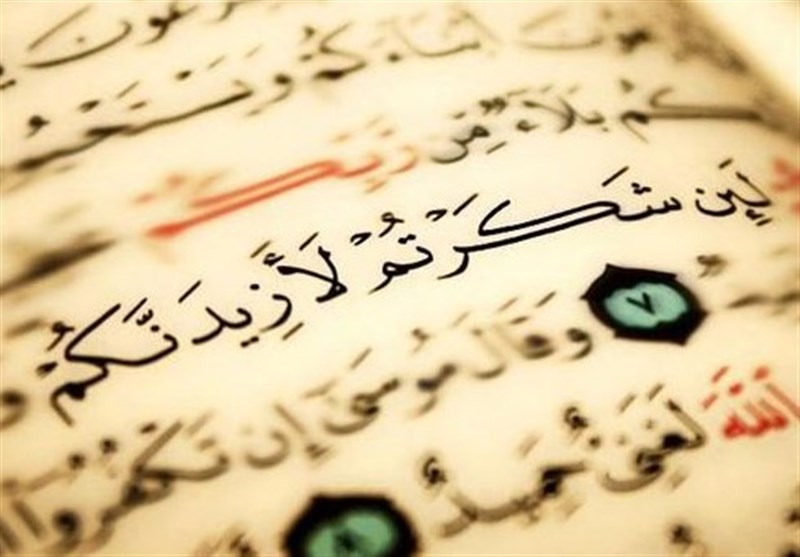 رْعَوْنَ
ونَ أَبْنَاءَكُمْ وَيَسْتَحْيُو
كُم بَلَاءٌ مِّن رَّبِّكُمْ
لَئِن شَكَرْتُمْ لَأَزِيدَنَّكُمْ
٧ وَقَالَ مُوسَىٰ إِن تَكْفُرُوا
اللَّهَ لَغَنِيٌّ حَمِيدٌ ٨